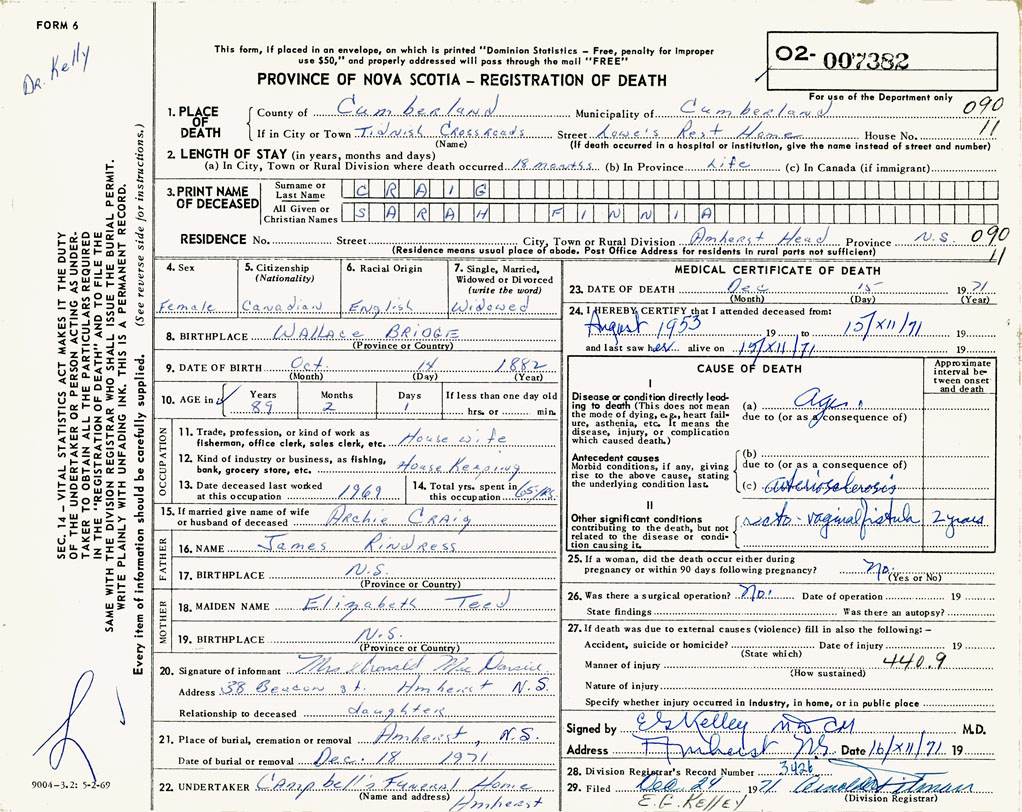 FORM 6
Dr. Kelly
This form, if placed in an envelope, on which is printed "Dominion Statistics – Free, penalty for improper
use $50," and properly addressed will pass through the mail "FREE"
PROVINCE OF NOVA SCOTIA – REGISTRATION OF DEATH
O2- 007382
For use of the Department only
090
11
1. PLACE OF DEATH County of Cumberland Municipality of Cumberland
If in City or Town Tidnish Crossroads Street Lowe's Rest Home House No.
(Name) (If death occurred in a hospital or institution, give the name instead of street and number)
2. LENGTH OF STAY (in years, months and days)
(a) In City, Town or Rural Division where death occurred 18 months (b) In Province Life (c) In Canada (if immigrant)
3. PRINT NAME OF DECEASED
Surname or Last Name CRAIG
All Given or Christian Names SARAH FINNIA
RESIDENCE No. Street City, Town or Rural Division Amherst Head Province N.S. 090
(Residence means usual place of abode. Post Office Address for residents in rural ports not sufficient) 11
4. Sex
Female
5. Citizenship (Nationality)
Canadian
6. Racial Origin
English
7. Single, Married, Widowed or Divorced (write the word)
Widowed
8. BIRTHPLACE WALLACE BRIDGE
(Province or Country)
9. DATE OF BIRTH Oct. 14 1882
(Month) (Day) (Year)
10. AGE in Years Months Days If less than one day old
89 2 1 hrs. or min.
OCCUPATION
11. Trade, profession, or kind of work as
fisherman, office clerk, sales clerk, etc. House wife
12. Kind of industry or business, as fishing,
bank, grocery store, etc. House Keeping
13. Date deceased last worked at this occupation 1969
14. Total yrs. spent in this occupation 65 yrs.
15. If married give name of wife
or husband of deceased Archie Craig
FATHER
16. NAME James Rindress
17. BIRTHPLACE N.S.
(Province or Country)
MOTHER
18. MAIDEN NAME Elizabeth Teed
19. BIRTHPLACE N.S.
(Province or Country)
20. Signature of informant Mrs Donald
Address 38 Beacon St. Amherst N.S.
Relationship to deceased daughter
21. Place of burial, cremation or removal Amherst, N.S.
Date of burial or removal Dec. 18 1971
22. UNDERTAKER Campbell's Funeral Home
(Name and address) Amherst
MEDICAL CERTIFICATE OF DEATH
23. DATE OF DEATH Dec 15 1971
(Month) (Day) (Year)
24. I HEREBY CERTIFY that I attended deceased from:
August 1953 19 to 15/XII/71 19
and last saw her alive on 15/XII/71 19
CAUSE OF DEATH
Approximate interval between onset and death
I
Disease or condition directly leading to death (This does not mean the mode of dying, e.g., heart failure, asthenia, etc. It means the disease, injury, or complication which caused death.)
(a) Age!
due to (or as a consequence of)
Antecedent causes
Morbid conditions, if any, giving rise to the above cause, stating the underlying condition last.
(b)
due to (or as a consequence of)
(c) arteriosclerosis
II
Other significant conditions
contributing to the death, but not related to the disease or condition causing it.
recto-vaginal fistula 2 years
25. If a woman, did the death occur either during
pregnancy or within 90 days following pregnancy? No.
(Yes or No)
26. Was there a surgical operation? No! Date of operation 19
State findings Was there an autopsy?
27. If death was due to external causes (violence) fill in also the following: –
Accident, suicide or homicide? Date of injury 19
(State which)
Manner of injury 440.9
(How sustained)
Nature of injury
Specify whether injury occurred in Industry, in home, or in public place
Signed by E G Kelley MD CM M.D.
Address Amherst NS Date 16/XII/71 19
28. Division Registrar's Record Number 3426
29. Filed Dec 24 1971
(Division Registrar)
E. G. KELLEY
SEC. 14 – VITAL STATISTICS ACT MAKES IT THE DUTY
OF THE UNDERTAKER OR PERSON ACTING AS UNDER-
TAKER TO OBTAIN ALL THE PARTICULARS REQUIRED
IN THE "REGISTRATION OF DEATH" AND TO FILE THE
SAME WITH THE DIVISION REGISTRAR WHO SHALL ISSUE THE BURIAL PERMIT.
WRITE PLAINLY WITH UNFADING INK. THIS IS A PERMANENT RECORD.
Every item of information should be carefully supplied. (See reverse side for instructions.)
9004-3.2: 5-2-69